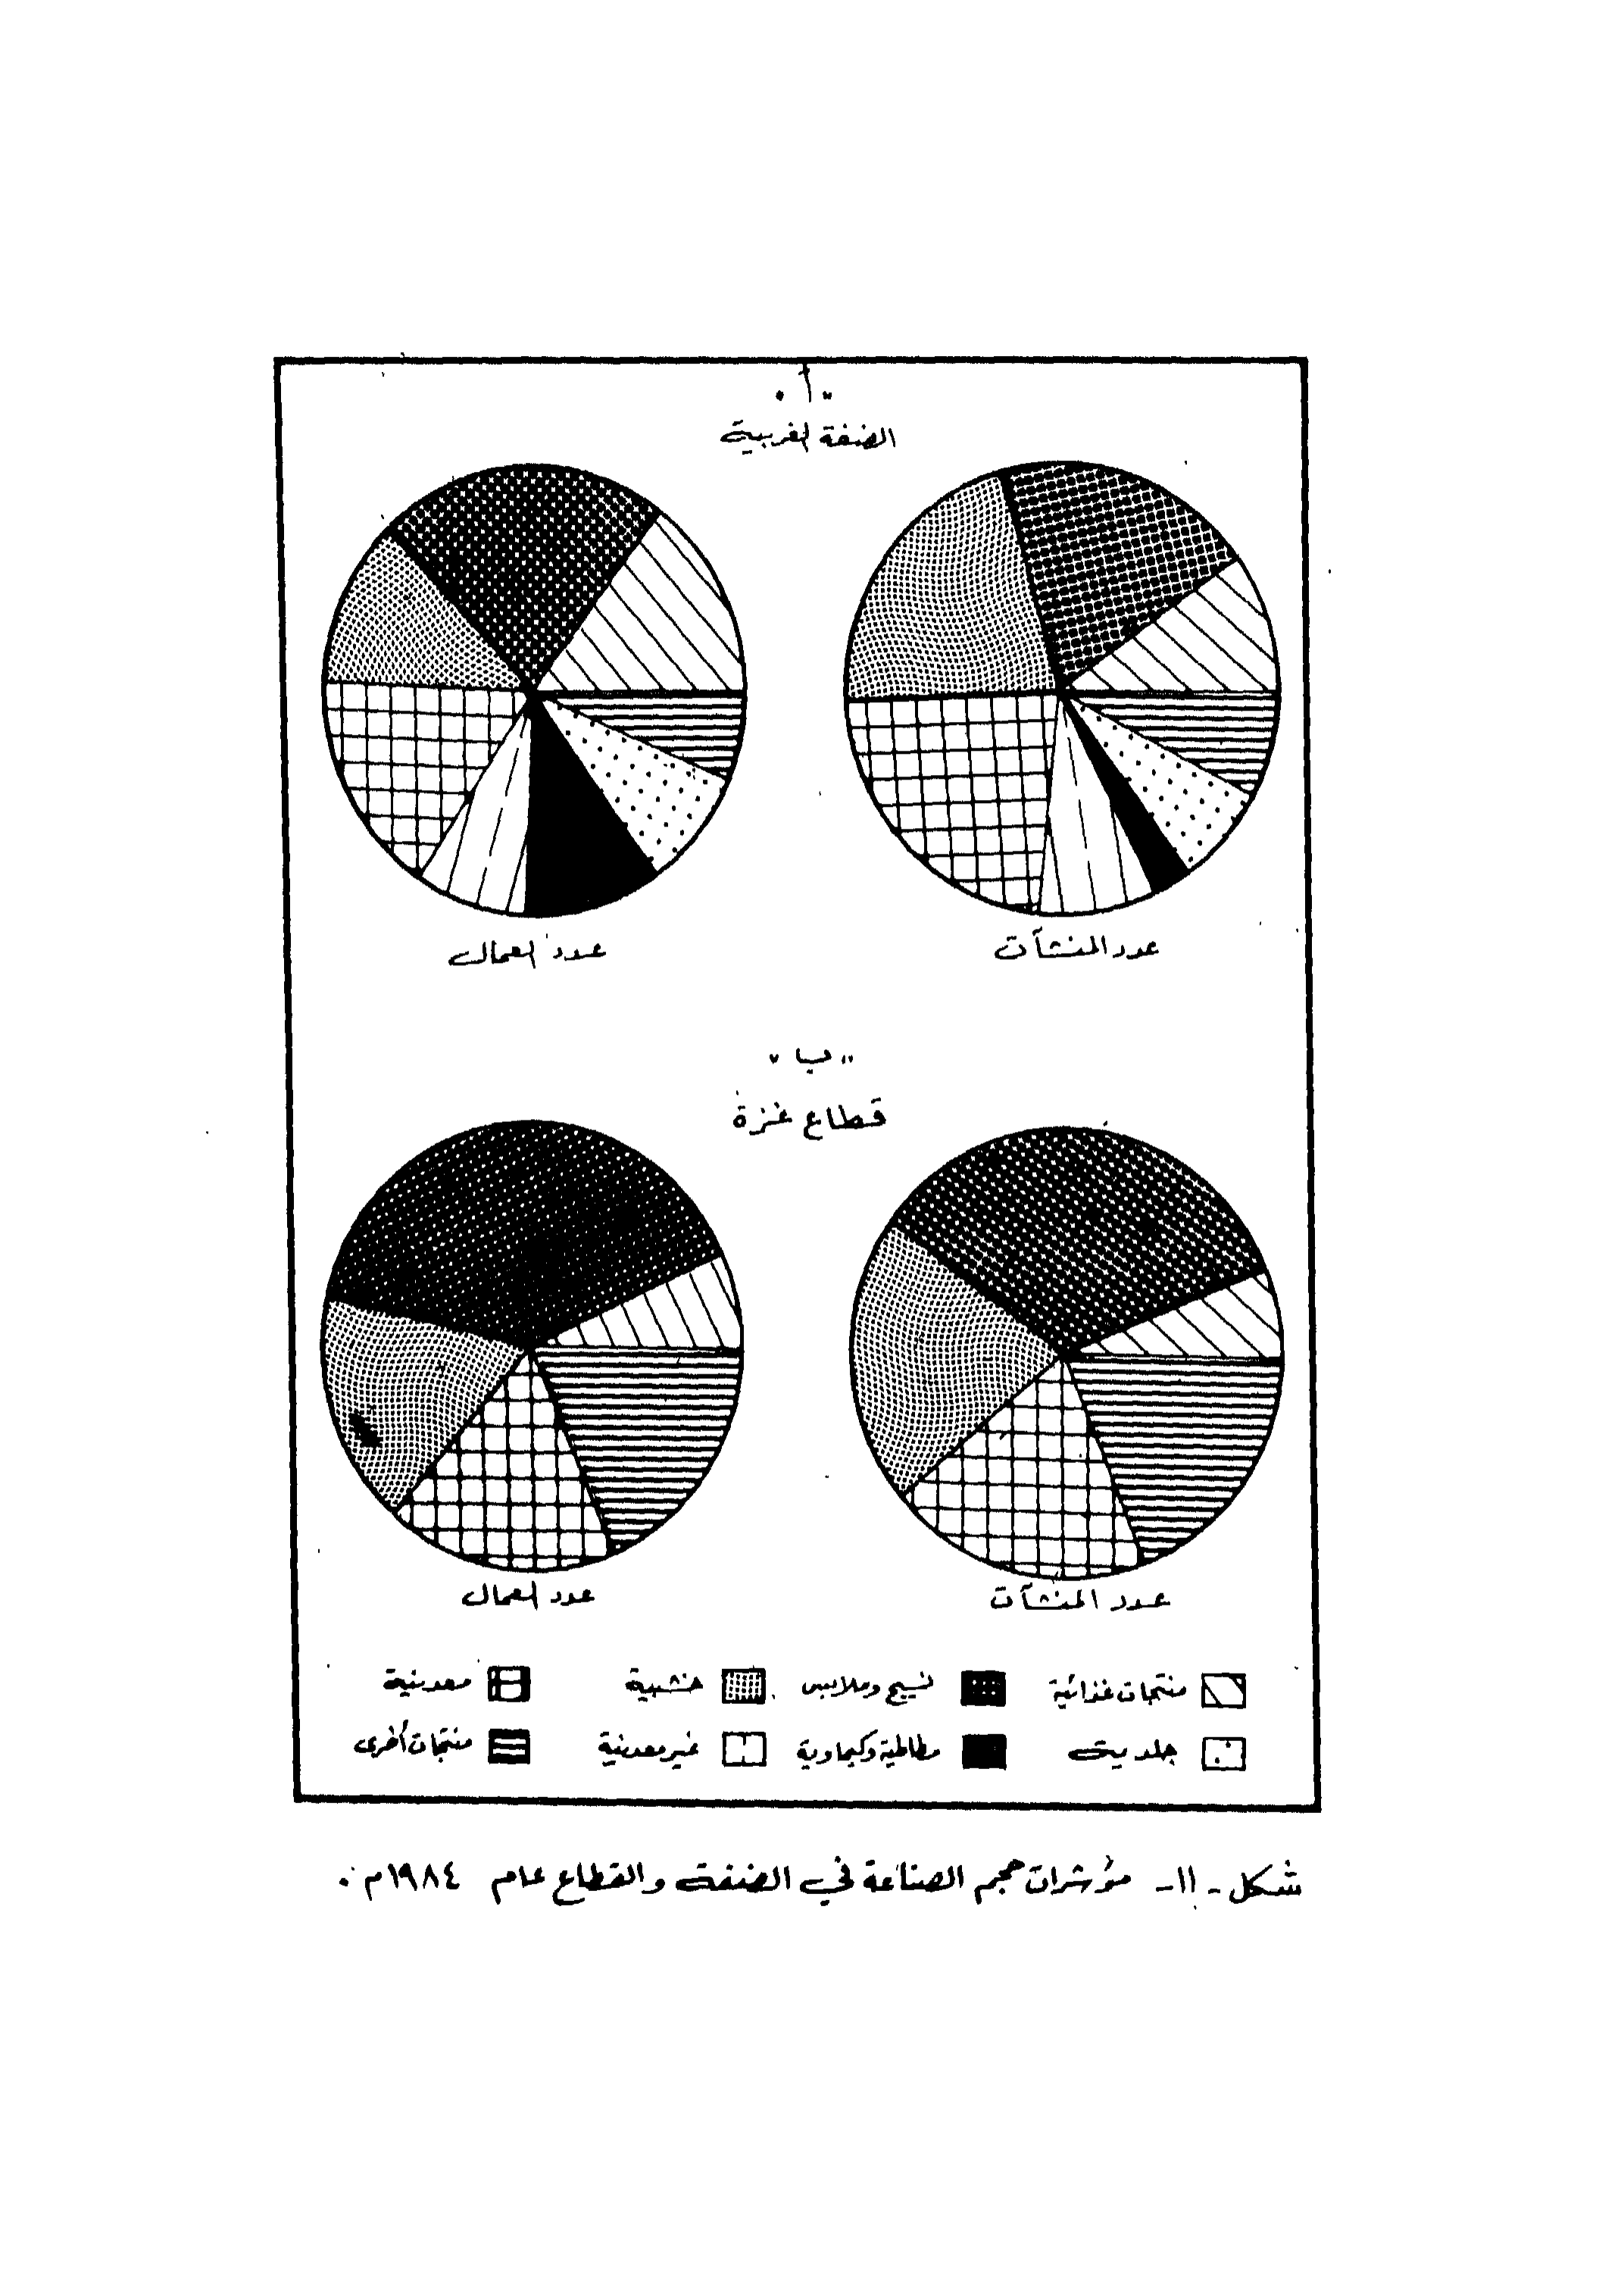 "أ"
الضفة الغربية
عدد المنشآت
عدد العمال
"ب"
قطاع غزة
عدد المنشآت
عدد العمال
منتجات غذائية نسيج وملابس خشبية معدنية
جلديت مطاطية وكيماوية غير معدنية منتجات أخرى
شكل - ١١ - مؤشرات حجم الصناعة في الضفة والقطاع عام ١٩٨٤م.